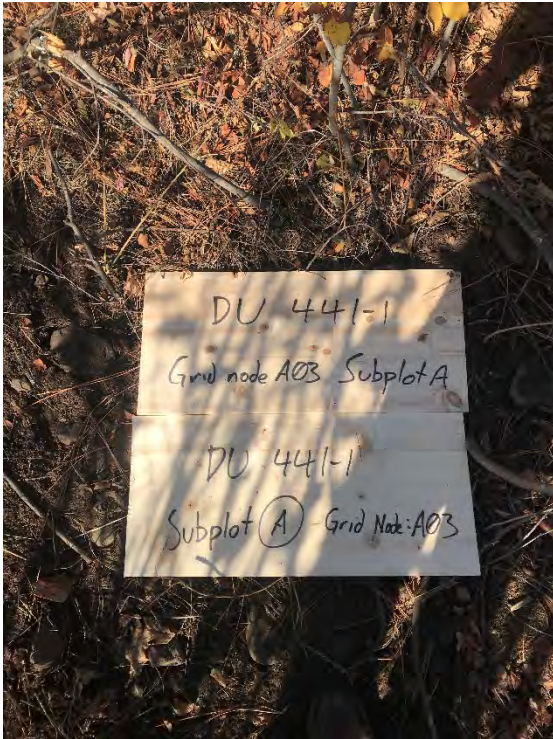 DU 441-1
Grid node A03 Subplot A
DU 441-1
Subplot A Grid Node: A03